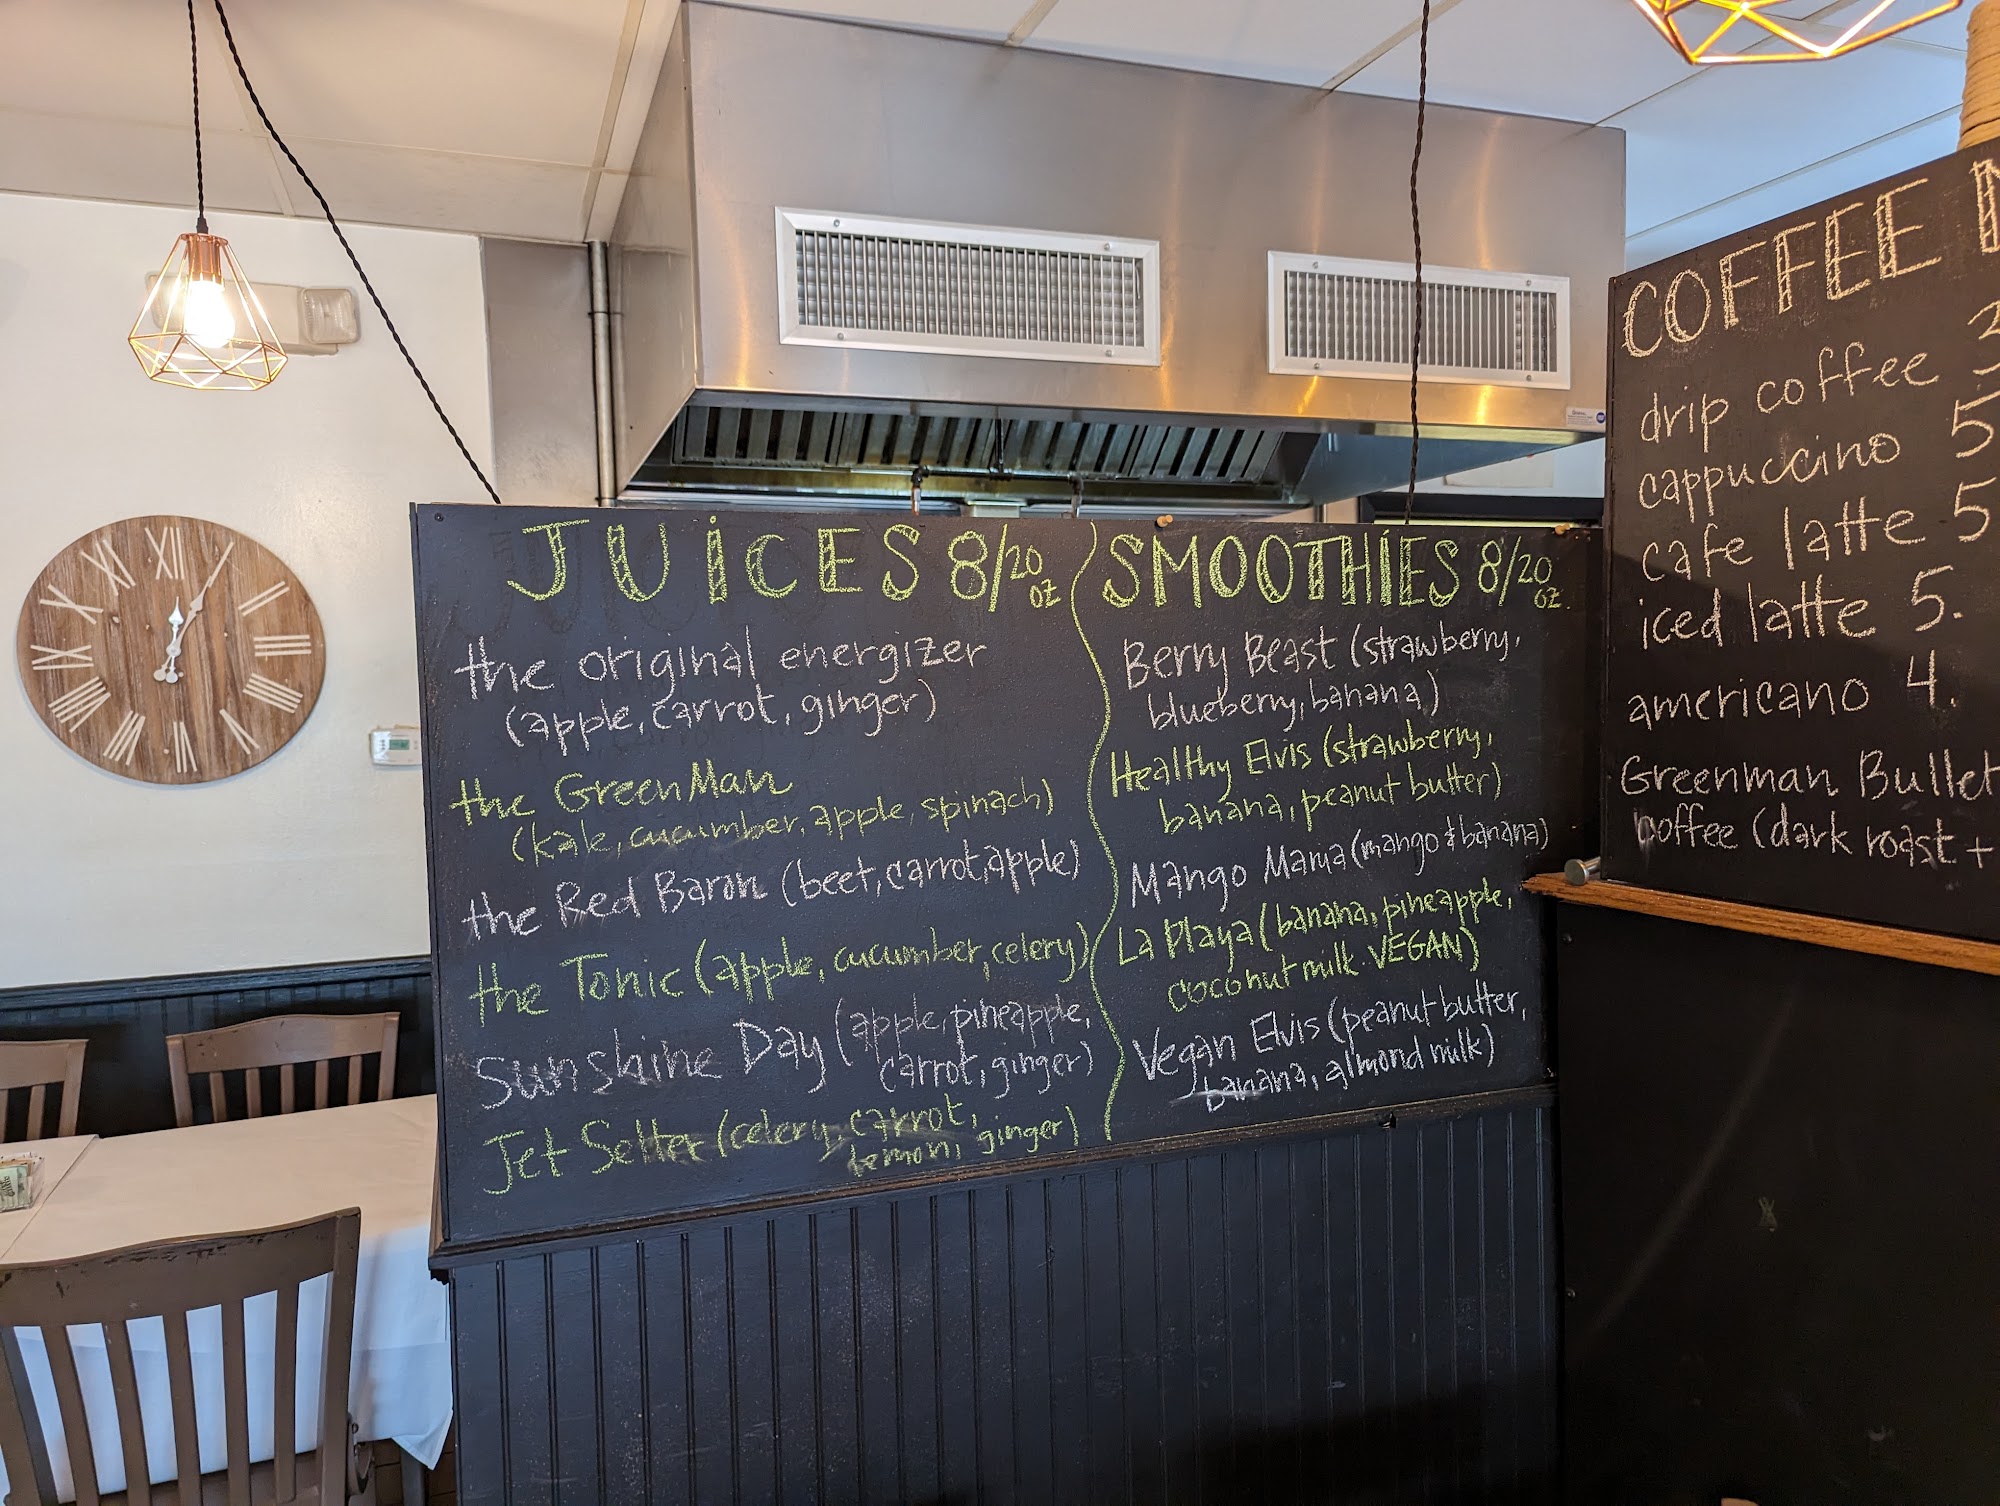 JUICES 8/20 oz
the original energizer
(apple, carrot, ginger)
the GreenMan
(kale, cucumber, apple, spinach)
the Red Baron (beet, carrot, apple)
the Tonic (apple, cucumber, celery)
Sunshine Day (apple, pineapple,
carrot, ginger)
Jet Setter (celery, carrot,
lemon, ginger)
SMOOTHIES 8/20 oz.
Berry Beast (strawberry,
blueberry, banana)
Healthy Elvis (strawberry,
banana, peanut butter)
Mango Mama (mango & banana)
La Playa (banana, pineapple,
coconut milk. VEGAN)
Vegan Elvis (peanut butter,
banana, almond milk)
COFFEE
drip coffee 3
cappuccino 5
cafe latte 5
iced latte 5.
americano 4.
Greenman Bullet
(dark roast +
XII
I
II
III
IIII
V
VI
VII
VIII
IX
X
XI